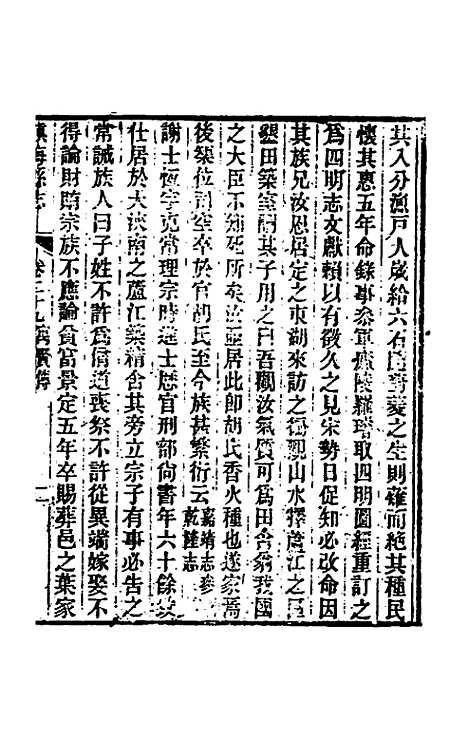 其入分漁戶人歲給六石茭葑菱之生則雍而絕其種民
懷其惠五年命錄事參軍廬陵羅璿取四明圖經重訂之
爲四明志文獻賴以有徵久之見宋勢日促知必改命因
其族兄汝恩居定之東湖來訪之德觀山水擇蘆江之
墾田築室謂其子用之曰吾觀汝氣質可爲田舍翁我國
之大臣不知死所矣汝居此即胡氏香火種也遂家焉
後築位司空卒於官胡氏至今族甚繁衍云嘉靖志參乾隆志
謝士恆字克常理宗時進士歷官刑部尚書年六十餘致
仕居於大浹南之蘆江築精舍其旁立宗子有事必告之
常誡族人曰子姓不許爲僧道喪祭不許從異端嫁娶不
得論財賄宗族不應論貧富景定五年卒賜葬邑之葉家
鎮海縣志 卷二十九寓賢傳